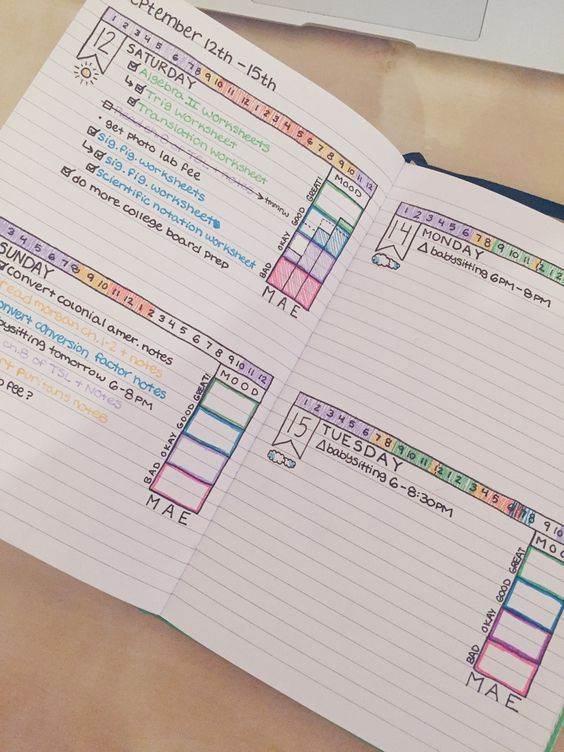 September 12th - 15th
1 2 3 4 5 6 7 8 9 10 11 12 1 2 3 4 5 6 7 8 9 10 11 12
12
SATURDAY
Algebra II Worksheets
Trig Worksheet
Translation Worksheet
→ tmrw
• get photo lab fee
sig. fig. worksheets
sig. fig. worksheet
scientific notation worksheet
do more college board prep
MOOD
GREAT!
GOOD
OKAY
BAD
M A E
3 4 5 6 7 8 9 10 11 12 1 2 3 4 5 6 7 8 9 10 11 12
SUNDAY
convert colonial amer. notes
read morgan ch. 1-2 + notes
convert conversion factor notes
babysitting tomorrow 6-8 PM
ch. 8 of TSL + Notes
puritans notes
fee?
MOOD
GREAT!
GOOD
OKAY
BAD
M A E
1 2 3 4 5 6 7 8 9 10 11 12 1 2
14
MONDAY
Δ babysitting 6PM-8PM
1 2 3 4 5 6 7 8 9 10 11 12 1 2 3 4 5 6 7 8 9 10
15
TUESDAY
Δ babysitting 6-8:30PM
MOO
GREAT
GOOD
OKAY
BAD
M A E